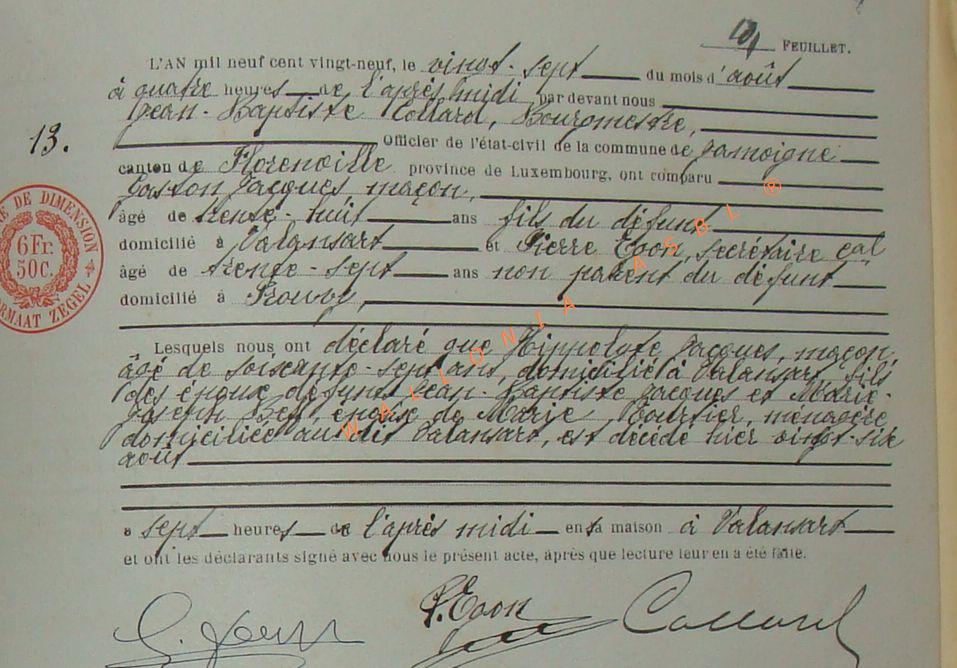 121 FEUILLET.
L'AN mil neuf cent vingt-neuf, le vingt-sept du mois d'août
à quatre heures de l'après midi par devant nous
Jean-Baptiste Collard, Bourgmestre,
13.
Officier de l'état-civil de la commune de Jamoigne
canton de Florenville province de Luxembourg, ont comparu
Gaston Jacques, maçon,
âgé de trente-huit ans fils du défunt
domicilié à Valansart et Pierre Evon, secrétaire cal
âgé de trente-sept ans non parent du défunt
domicilié à Prouvy,
Lesquels nous ont déclaré que Hippolyte Jacques, maçon,
âgé de soixante-sept ans, domicilié à Valansart, fils
des époux défunts Jean-Baptiste Jacques et Marie-
Joseph époux de Marie ménagère
domiciliée audit Valansart, est décédé hier vingt-six
août
à sept heures de l'après midi en sa maison à Valansart
et ont les déclarants signé avec nous le présent acte, après que lecture leur en a été faite.
P. Evon
Collard
E DE DIMENSION
6 Fr.
50C.
RMAAT ZEGEL
WALLONIA ASBL ®